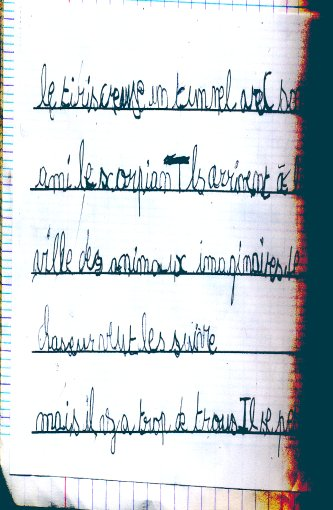 le tiris creuse un tunnel avec
ami le scorpian Ils arrivent à
ville des animaux imaginaires
chaseur veut les suivre
mais il y a trop de trous Il se